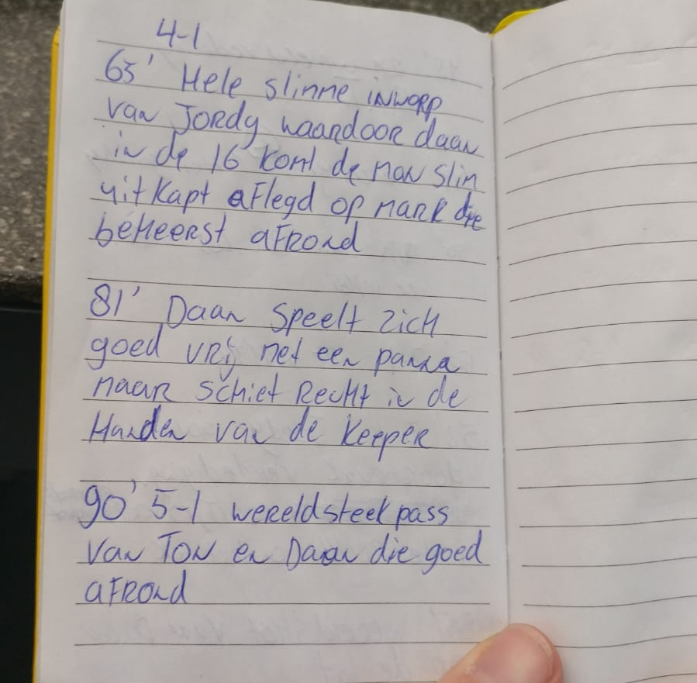 4-1
63' Hele slimme inworp
van Jordy waardoor daan
in de 16 komt de man slim
uitkapt aflegd op mark die
beheerst afrond
81' Daan speelt zich
goed vrij met een panna
maar schiet recht in de
Handen van de keeper
90' 5-1 wereldsteekpass
van Ton en Daan die goed
afrond